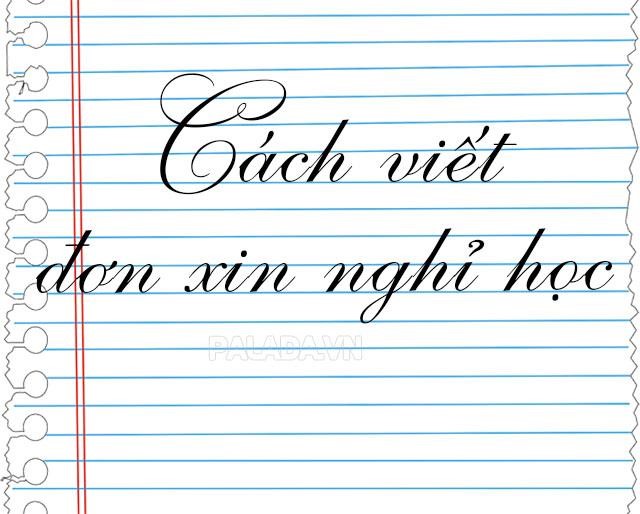 Cách viết
đơn xin nghỉ học
PALADA.VN